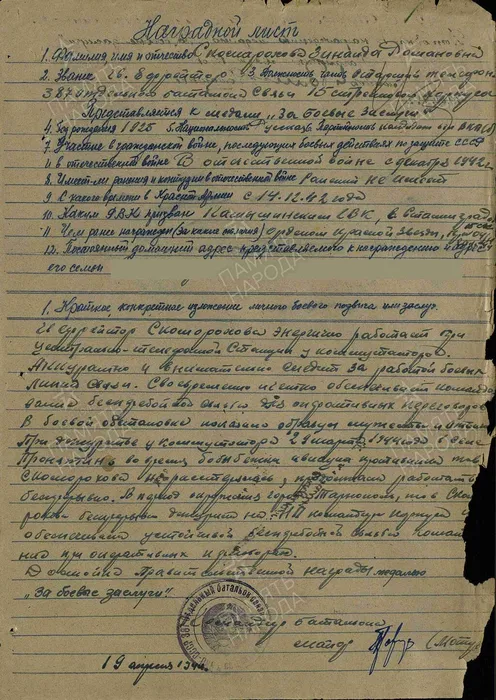 Наградной лист
1. Фамилия, имя и отчество Скоморохова Зинаида Романовна
2. Звание Ефрейтор 3. Должность, часть Старший телефон
387 отдельного батальона связи 15 стрелкового корпуса
Представляется к медали „За боевые заслуги"
4. Год рождения 1925 5. Национальность русская 6. Партийность кандидат ВКП(б)
7. Участие в гражданской войне, последующих боевых действиях по защите СССР
и в отечественной войне В отечественной войне с декабря 1942 г.
8. Имеет ли ранения и контузии в отечественной войне Ранений не имеет
9. С какого времени в Красной Армии с 14.12.42 года
10. Каким РВК призван РВК,
11. Чем ранее награжден (за какие отличия) Орденом Красной Звезды,
12. Постоянный домашний адрес представляемого к награждению и адрес
его семьи
1. Краткое, конкретное изложение личного боевого подвига или заслуг.
Ефрейтор Скоморохова энергично работает при
центрально-телефонной станции у коммутатора.
Аккуратно и внимательно следит за работой боевых
линий связи. Своевременно и четко обеспечивает командо
вание бесперебойной связью для оперативных переговоров.
В боевой обстановке показала образцы мужества и
При дежурстве у коммутатора 29 марта 1944 года в селе
во время бомбежки авиации противника тов.
Скоморохова не растерялась, продолжала работать
беспрерывно. В период окружения города Тарнополь, тов. Скомо
рохова беспрерывно дежурила на командира корпуса и
обеспечивала устойчивой бесперебойной связью коман
при оперативных переговорах.
Достойна Правительственной награды медалью
„За боевые заслуги".
387 отдельный батальон связи
Командир батальона
майор
19 апреля 1944 г.
ПАМЯТЬ
НАРОДА